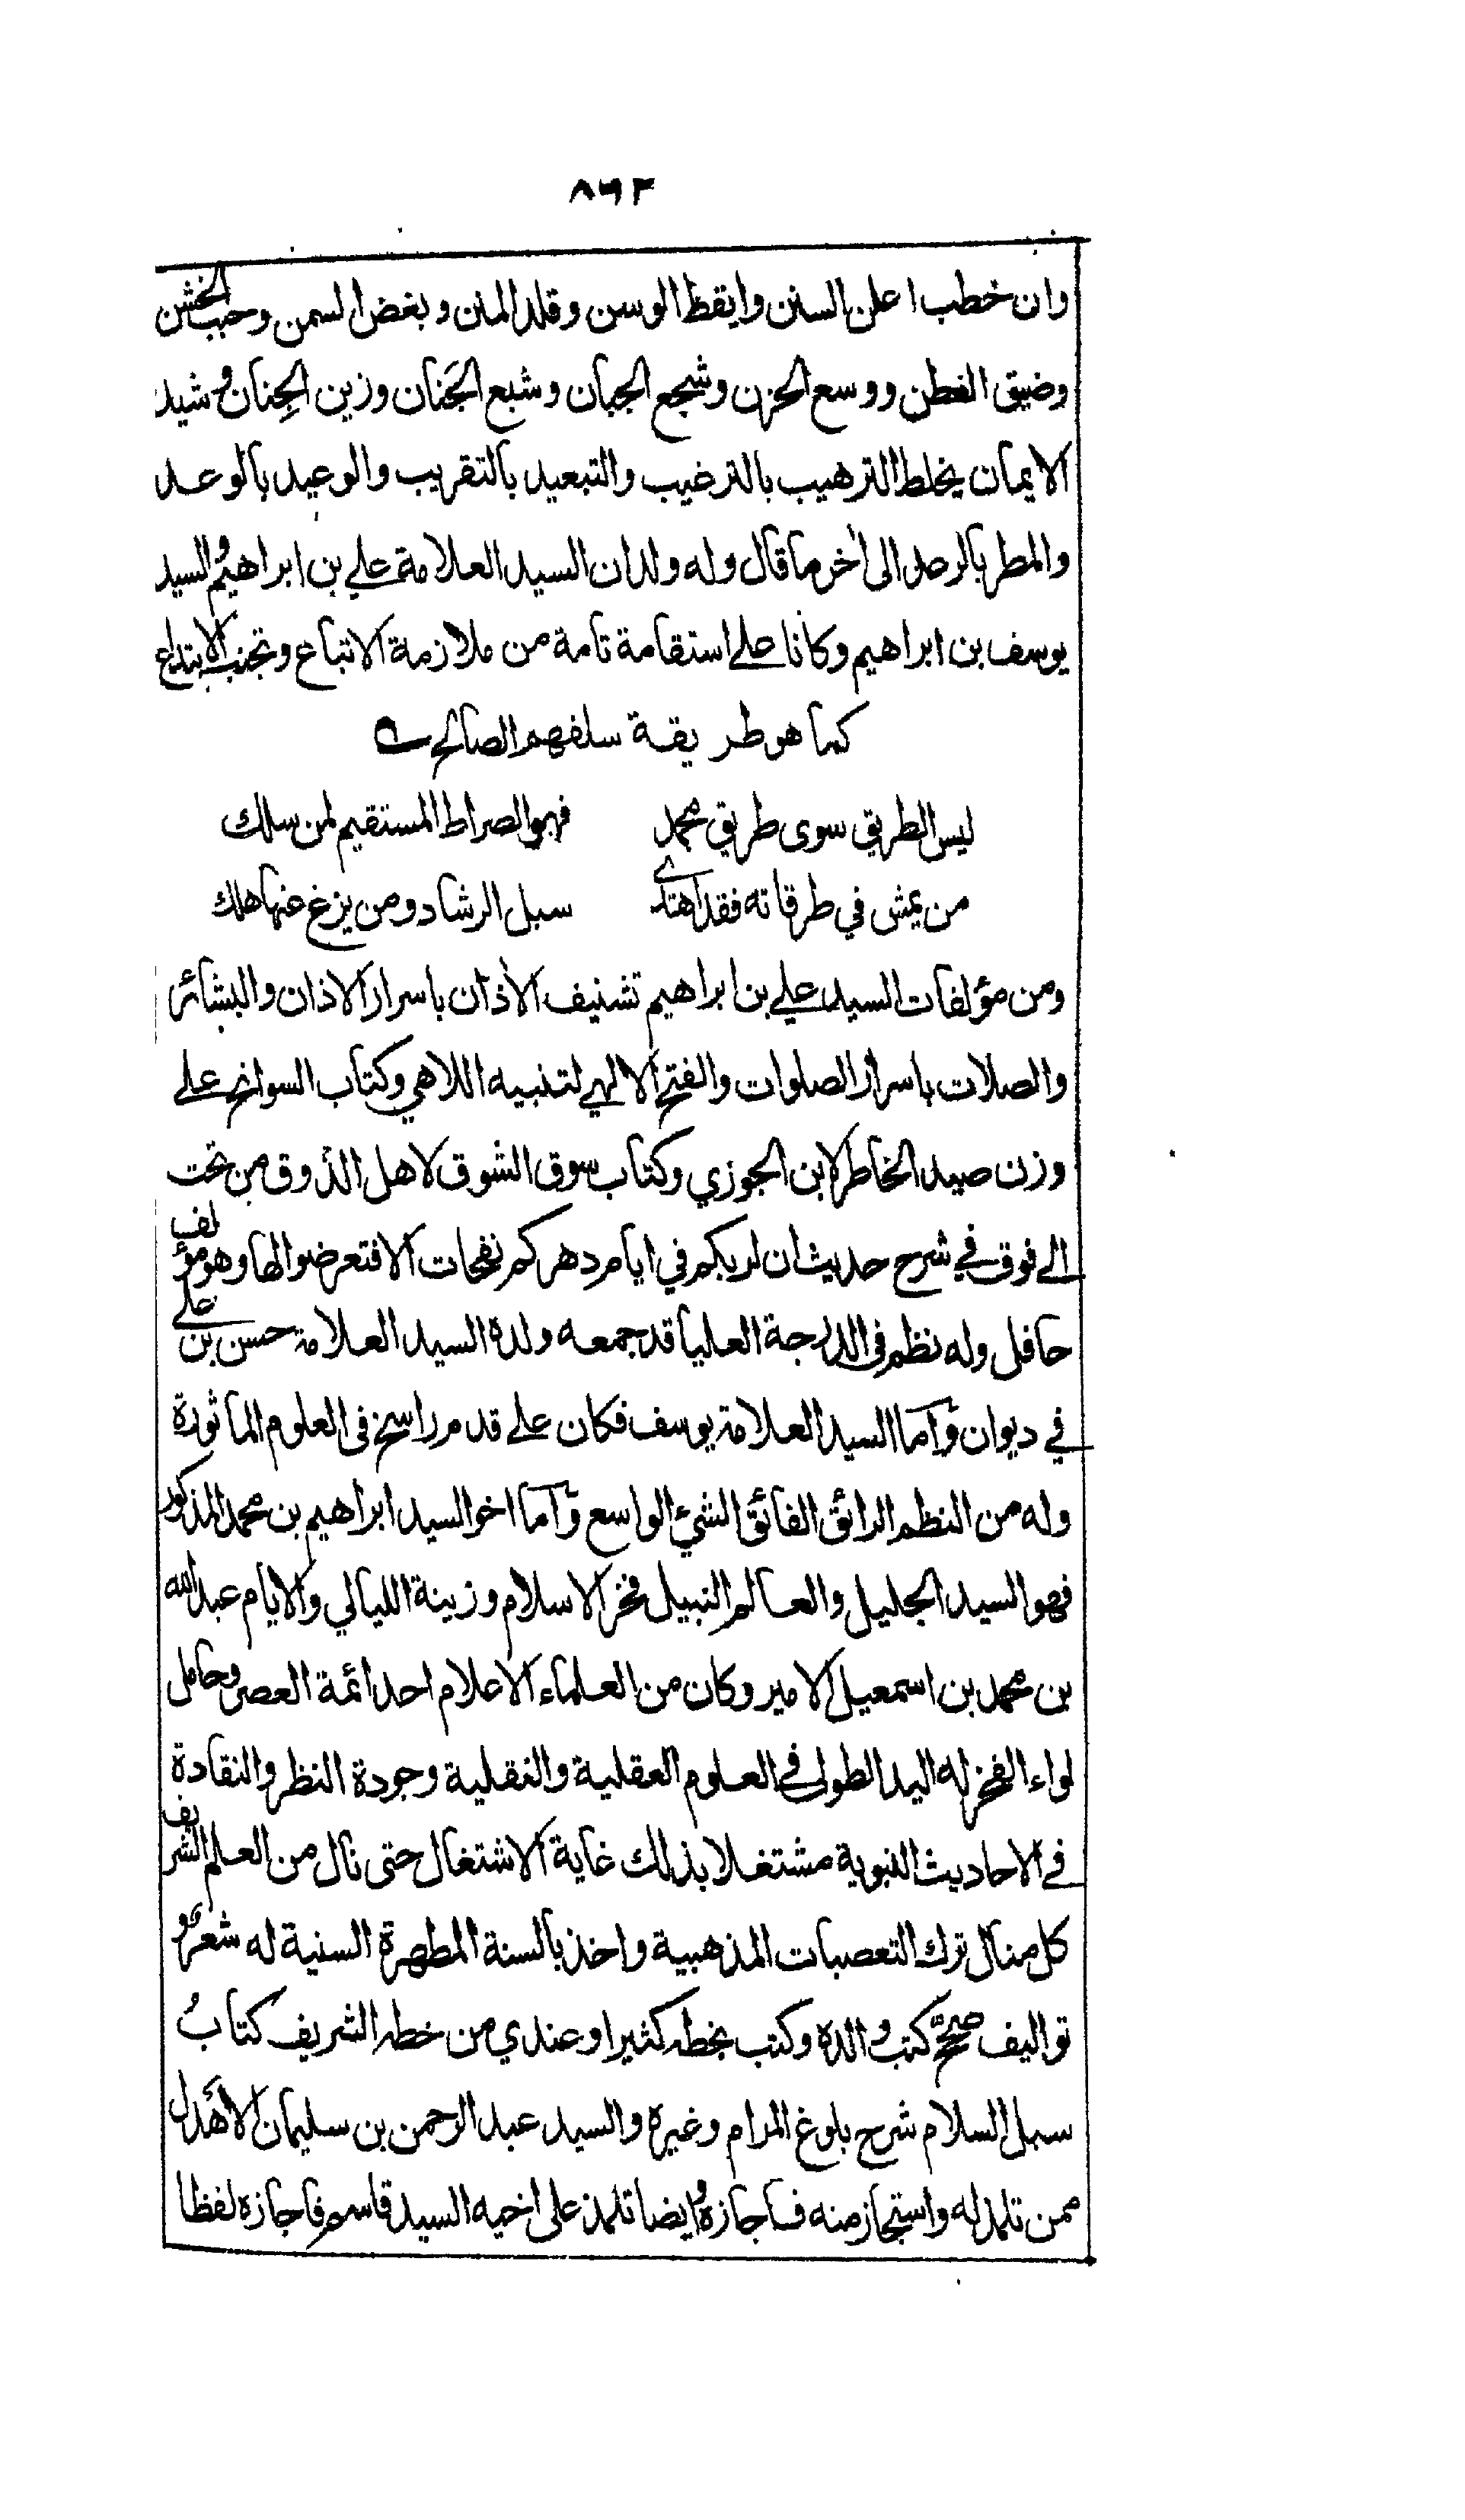 ٨٦٢
وان خطب اعلن السنن وايقظ الوسن وقلد المنن وبغض السمن وحبب الخشن
وضيق الفطن ووسع الحزن وشجع الجبان وشبع الجَنان وزين الجِنان وشيد
الايمان يخلط الترهيب بالترغيب والتبعيد بالتقريب والوعيد بالوعد
والمطر بالرعد الى اخر ما قال وله ولدان السيد العلامة علي بن ابراهيم والسيد
يوسف بن ابراهيم وكانا على استقامة تامة من ملازمة الاتباع وتجنب الابتداع
كما هو طريقة سلفهم الصالح
ليس الطريق سوى طريق محمد فهو الصراط المستقيم لمن سلك
من يمش في طرقاته فقد اهتدى سبل الرشاد ومن يزغ عنها هلك
ومن مؤلفات السيد علي بن ابراهيم تشنيف الآذان باسرار الاذان والبشائر
والصلات باسرار الصلوات والفتح الالهي لتنبيه اللاهي وكتاب السوانح على
وزن صيد الخاطر لابن الجوزي وكتاب سوق الشوق لاهل الذوق من تحت
الى فوق في شرح حديث ان لربكم في ايام دهركم نفحات الا فتعرضوا لها وهو مؤلف
حافل وله نظم في الدرجة العليا قد جمعه ولده السيد العلامة حسن بن علي
في ديوان واما السيد العلامة يوسف فكان على قدم راسخ في العلوم الماثورة
وله من النظم الرائق الفائق الشيء الواسع واما اخو السيد ابراهيم بن محمد المذكور
فهو السيد الجليل والعالم النبيل فخر الاسلام وزينة الليالي والايام عبد الله
بن محمد بن اسمعيل الامير وكان من العلماء الاعلام احد ائمة العصر وحامل
لواء الفخر له اليد الطولى في العلوم العقلية والنقلية وجودة النظر والنقادة
في الاحاديث النبوية مشتغلا بذلك غاية الاشتغال حتى نال من العلم الشريف
كل منال ترك التعصبات المذهبية واخذ بالسنة المطهرة السنية له شعر و
تواليف صحح كتب والده وكتب بخطه كثيرا وعندي من خطه الشريف كتاب
سبل السلام شرح بلوغ المرام وغيره والسيد عبد الرحمن بن سليمان الاهدل
ممن تلمذ له واستجاز منه فاجازه وايضا تلمذ على اخيه السيد قاسم فاجازه لفظا